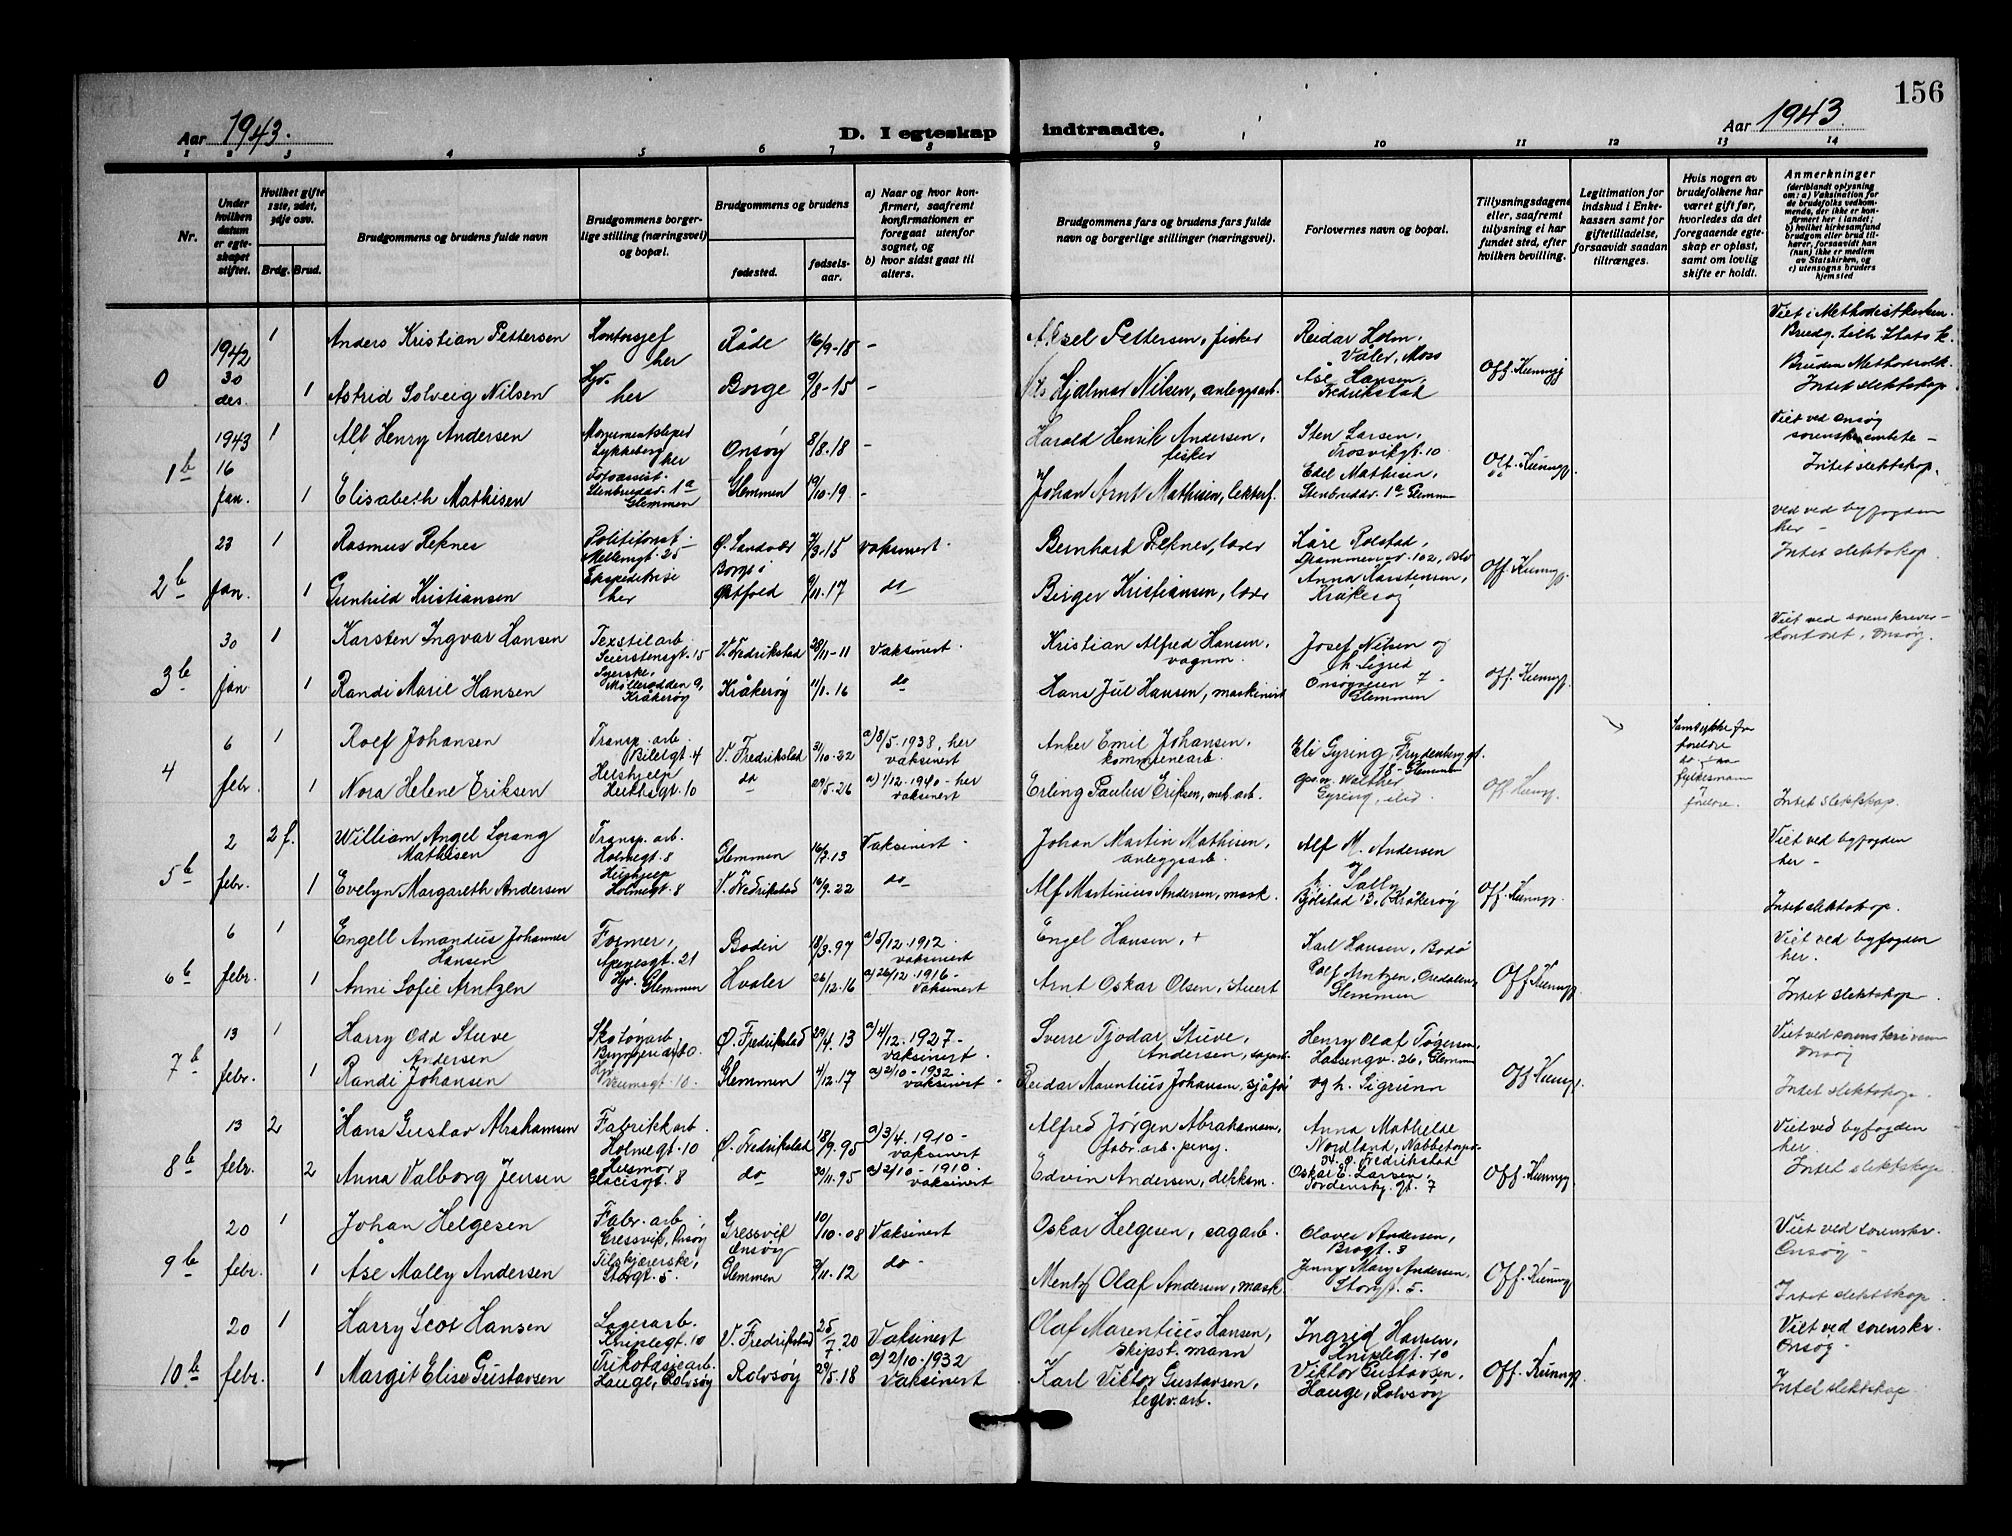 156
Aar 1943.
D. I egteskap indtraadte.
Aar 1943
1 2 3 4 5 6 7 8 9 10 11 12 13 14
Nr.
Under hvilken datum er egteskapet stiftet.
Hvilket gifte 1ste, 2det, 3dje osv.
Brdg. Brud.
Brudgommens og brudens fulde navn
Brudgommens borgerlige stilling (næringsvei) og bopæl.
Brudgommens og brudens
fødested.
fødselsaar.
a) Naar og hvor konfirmert, saafremt konfirmationen er foregaat utenfor sognet, og
b) hvor sidst gaat til alters.
Brudgommens fars og brudens fars fulde navn og borgerlige stillinger (næringsvei).
Forlovernes navn og bopæl.
Tillysningsdagene eller, saafremt tillysning ei har fundet sted, efter hvilken bevilling.
Legitimation for indskud i Enkekassen samt for giftetilladelse, forsaavidt saadan tiltrænges.
Hvis nogen av brudefolkene har været gift før, hvorledes da det foregaaende egteskap er opløst, samt om lovlig skifte er holdt.
Anmerkninger
(deriblandt oplysning om: a) Vaksination for de brudefolks vedkommende, der ikke er konfirmert her i landet; b) hvilket kirkesamfund brudgom eller brud tilhører, forsaavidt han (hun) ikke er medlem av Statskirken, og c) utensogns bruders hjemsted
0
1942 30 des.
1 Anders Kristian Pettersen Kontorsjef her Råde 16/9-18 -
Aksel Pettersen, fisker
Reidar Holm, Våler, Moss
Viet i Methodistkirken.
Brudg. tilh. Stats k.
1 Astrid Solveig Nilsen her Borge 9/8-15 -
Nils Hjalmar Nilsen, anleggsarb.
Åse Hansen, Fredrikstad
Off. Kunngj.
Bruden Methodistk.
Intet slektskap
1b
1943 16 jan.
1 Alb Henry Andersen Lykkeberg her Onsøy 8/8.18 -
Harold Henrik Andersen, fisker
Sten Larsen, Trosvikgt. 10
Viet ved Onsøy sorenskr. embete -
1 Elisabeth Mathisen Stenbruddsv. 1a Glemmen Glemmen 19/10-19 -
Johan Arnt Mathisen,
Edel Mathisen, Stenbruddsv. 1a Glemmen
Off. Kunngj.
Intet slektskap.
2b
23 jan.
1 Rasmus Reknes Politikonst. Mellemgt. 25 Ø. Sandøy 7/3-15 vaksinert.
Bernhard Reknes, lærer
Kåre Rolstad,
ved ved byfogden her -
1 Gunhild Kristiansen Ekspeditrise her Borge i Østfold 9/11.17 do
Birger Kristiansen, lærer
Anna Karstensen, Kråkerøy
Off. Kunngj.
Intet slektskap.
3b
30 jan
1 Karsten Ingvar Hansen Textilarb. Seierstensgt. 15 V. Fredrikstad 28/11-11 vaksinert.
Kristian Alfred Hansen, vognm.
Josef Nilsen og h. Sigrid
Viet ved sorenskriverkontoret, Onsøy.
1 Randi Marie Hansen Syerske, Møllerodden 9, Kråkerøy Kråkerøy 11/1.16 do
Hans Jul Hansen, maskinist
Onsøyveien 7 - Glemmen
Off. Kunngj.
4
6 febr.
1 Rolf Johansen Transp. arb. Bilesgt. 4 V. Fredrikstad 31/10-22 a) 8/5-1938, her vaksinert
Anker Emil Johansen, kommunearb.
Eli Gyring, Frydenberggt. 18 - Glemmen
Samtykke fra foreldre
1 Nora Helene Eriksen Hushjelp Herthsgt. 10 do 29/5-26 a) 1/12.1940 - her vaksinert
Erling Paulin Eriksen, mek. arb.
Walther Gyring, ibid
Off. Kunngj.
fylkesmann
Intet slektskap.
5b
2 febr.
2 f. William Angel Sørang Mathisen Transp. arb. Holmegt. 8 Glemmen 16/7.13 Vaksinert -
Johan Martin Mathisen, anleggsarb.
Alf M. Andersen og
Viet ved byfogden her -
1 Evelyn Margareth Andersen Hushjelp Holmegt. 8 V. Fredrikstad 16/9.22 do
Alf Martinius Andersen, mask.
h. Sally Bjølstad 13, Kråkerøy
Off. Kunngj.
Intet slektskap.
6b
6 febr.
1 Engell Amandus Johannes Hansen Former, Apenesgt. 21 Bodin 18/3.97 a) 5/12.1912. vaksinert
Engel Hansen, +
Karl Hansen, Bodø
Viet ved byfogden her.
1 Anni Sofie Arntzen Hgr. Glemmen Hvaler 26/12.16 a) 26/12.1916 - vaksinert
Arnt Oskar Olsen, stuert
Rolf Arntzen, Glemmen
Off. Kunngj.
Intet slektskap
7b
13 febr.
1 Harry Odd Stuve Andersen Skotøyarb. Ø. Fredrikstad 29/4.13 a) 4/12.1927 - vaksinert.
Sverre Tjodar Stuve, Andersen,
Henry Olaf Tøgersen, Hassengv. 26, Glemmen
Viet ved sorenskriveren Onsøy
1 Randi Johansen Glemmen 4/12.17 a) 2/10-1932. vaksinert -
Reidar Marentius Johansen, sjåfør
og h. Sigrunn
Off Kunngj.
Intet slektskap.
8b
13 febr.
2 Hans Gustav Abrahamsen Fabrikkarb. Holmegt. 10 Ø. Fredrikstad 18/9.95 a) 3/4.1910 - vaksinert
Alfred Jørgen Abrahamsen, fabr. arb.
Anna Mathilde Nordland, Nabbetorpv. 74. Ø. Fredrikstad
Viet ved byfogden her.
2 Anna Valborg Jensen Husmor Glacisgt. 8 do 30/11.95 a) 2/10-1910. vaksinert
Edvin Andersen, dekksm.
Oskar E. Larsen, Tordenskj. gt. 7
Off. Kunngj.
Intet slektskap
9b
20 febr.
1 Johan Helgesen Fabr. arb. Gressvik, Onsøy Gressvik Onsøy 10/10.08 Vaksinert
Oskar Helgesen, sagarb.
Olaves Andersen, Brogt. 3
Viet ved sorenskr. Onsøy -
1 Åse Mally Andersen Tilskjærerske, Storgt. 5. Glemmen 2/11.12 do -
Mentof Olaf Andersen, mask.
Jenny Mary Andersen, Storgt. 5.
Off. Kunngj
Intet slektskap.
10b
20 febr.
1 Harry Scot Hansen Lagerarb. Kniplegt. 10 V. Fredrikstad 25/7.20 Vaksinert
Olaf Marentius Hansen, skipst. mann
Ingrid Hansen, Kniplegt. 10
Viet ved sorenskr. Onsøy -
1 Margit Elise Gustavsen Trikotasjearb. Hauge, Rolvsøy Rolvsøy 29/5.18 a) 2/10-1932 Vaksinert
Karl Viktor Gustavsen, teglv. arb.
Viktor Gustavsen, Hauge, Rolvsøy
Off. Kunngj.
Intet slektskap